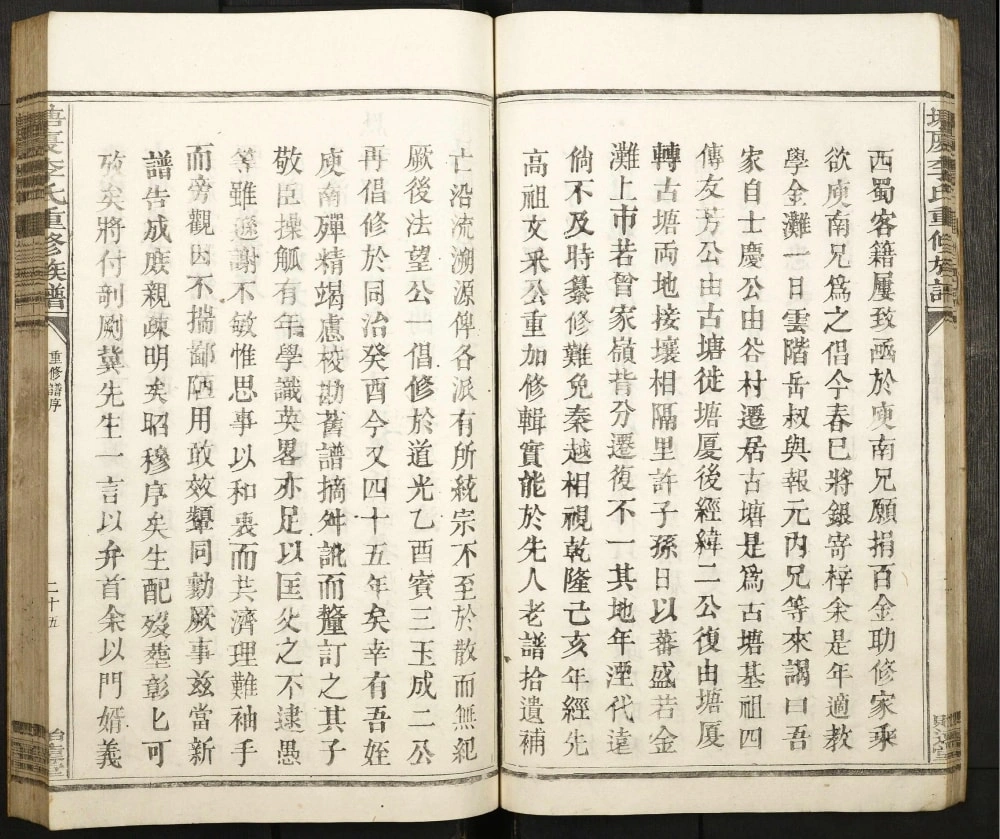 西蜀客籍屢致函於庾南兄願捐百金助修家乘
欲庾南兄爲之倡今春已將銀寄梓余是年適教
學金灘一日雲階岳叔與報元内兄等來謁曰吾
家自士慶公由谷村遷居古塘是爲古塘基祖四
傳友芳公由古塘徙塘厦後經緯二公復由塘厦
轉古塘両地接壤相隔里許子孫日以蕃盛若金
灘上市若曾家嶺背分遷復不一其地年湮代遠
倘不及時纂修難免秦越相視乾隆己亥年經先
高祖文釆公重加修輯實能於先人老譜拾遺補
亡沿流溯源俾各派有所統宗不至於散而無紀
厥後法望公一倡修於道光乙酉賓三玉成二公
再倡修於同治癸酉今又四十五年矣幸有吾姪
庾南殫精竭慮校勘舊譜摘舛訛而釐訂之其子
敬臣操觚有年學識英畧亦足以匡父之不逮愚
等雖遜謝不敏惟思事以和衷而共濟理難袖手
而旁觀因不揣鄙陋用敢效顰同勷厥事兹當新
譜告成庻親疎明矣昭穆序矣生配歿塟彰匕可
攷矣將付剞劂冀先生一言以弁首余以門婿義
塘厦李氏重修族譜
重修譜序
二十五